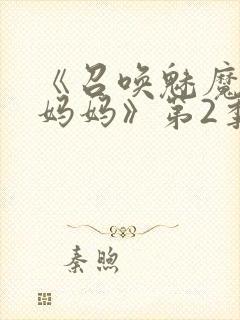 《召唤魅魔
妈妈》第2季
秦煦